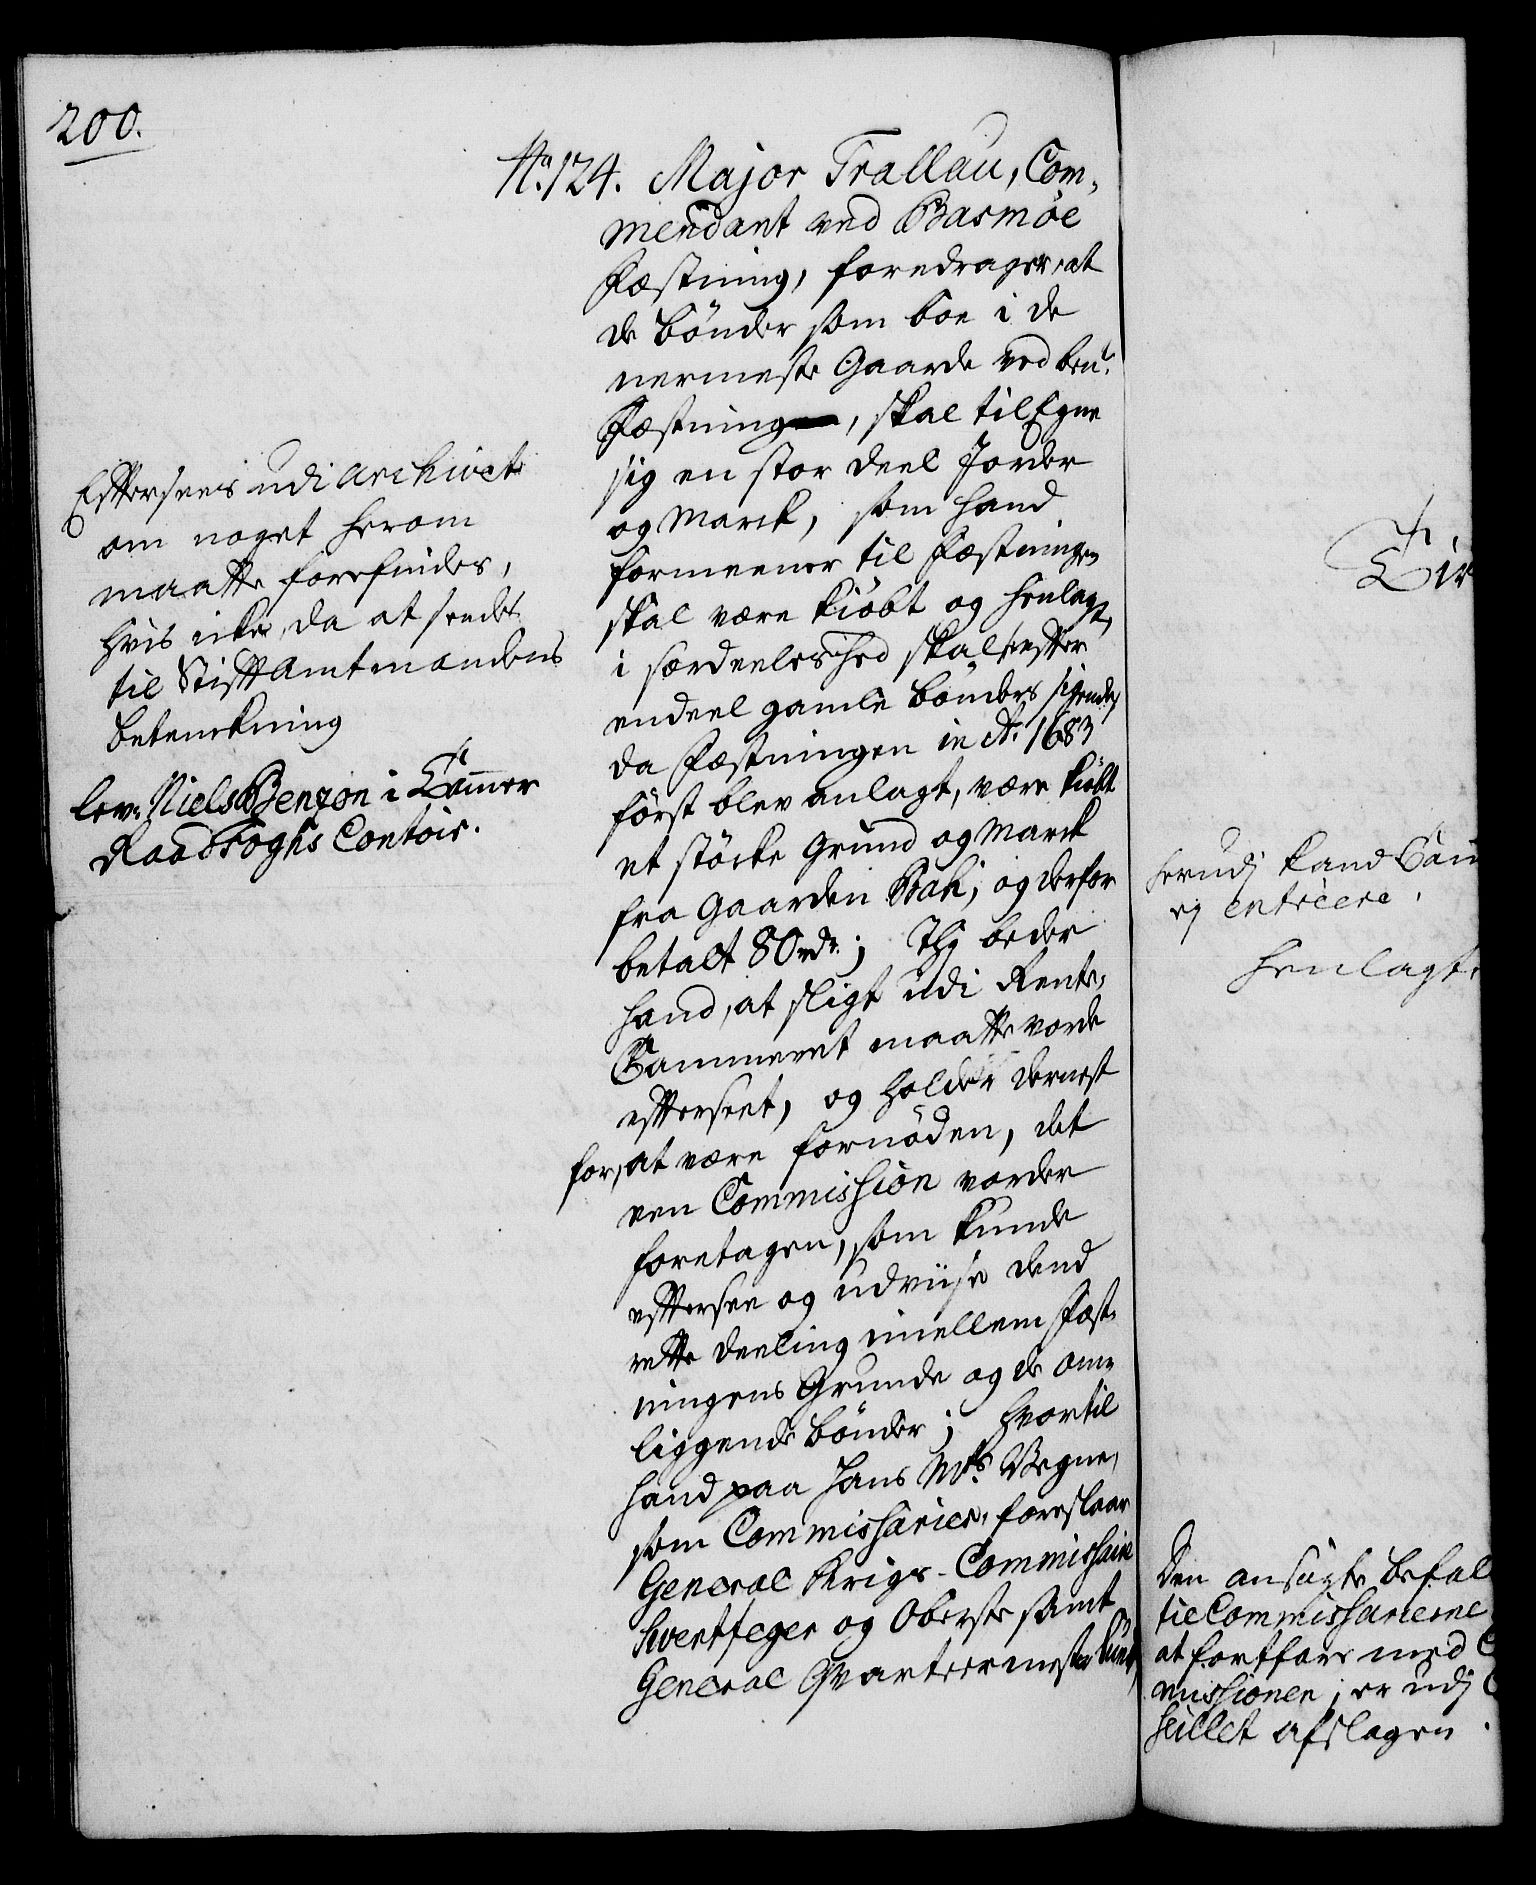 200.
No. 124. Major Trallau, Com-
mendant ved Basmöe
Fæstning, foredrager, at
de bönder som boe i de
nermeste Gaarde ved bem.te
Fæstning, skal tilEgne
sig en stor deel Jorder
og Marck, som hand
formeener til Fæstningen
skal være kiöbt og henlagt,
i særdeeleshed skal effter
endeel gamle bönders sigende,
da Fæstningen in Ao. 1683
först blev anlagt, være kiöbt
et stöcke Grund og Marck
fra Gaarden Bah, og derfor
betalt 80 rdr.; Thj beder
hand, at sligt udi Rente-
Cammeret maatte vorde
effterseet, og holder dernest
for, at være fornöden, det
een Commishion vorder
foretagen, som kunde
efftersee og udviise dend
rette deeling imellem Fæst-
ningens Grunde og de om-
liggende bönder; hvortil
hand paa Hans Mts. Vegne,
som Commisharier, foreslaar
General Krigs-Commishair
Svertfeger og Oberste samt
General Qvarteermester
Efftersees udi Archivet
om noget herom
maatte forefindes,
hvis icke, da at sendes
til StifftAmtmandens
betenckning
lev. Niels Benzon i Cammer
Raad Foghs Contoir.
herudj kand
ej entreere.
henlagt.
Den ansögte befal
til Commisharierne
at fortfare med
mishionen, er udj
Seillet afslagen.